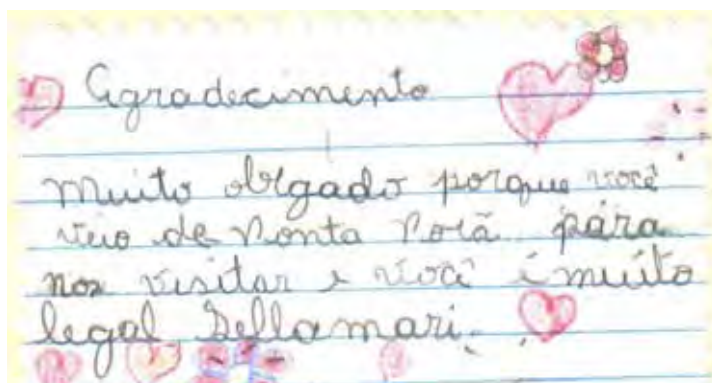 Agradecimento
Muito obrgado porque você
veio de Ponta Porã para
nos visitar e você é muito
legal Dellamari.